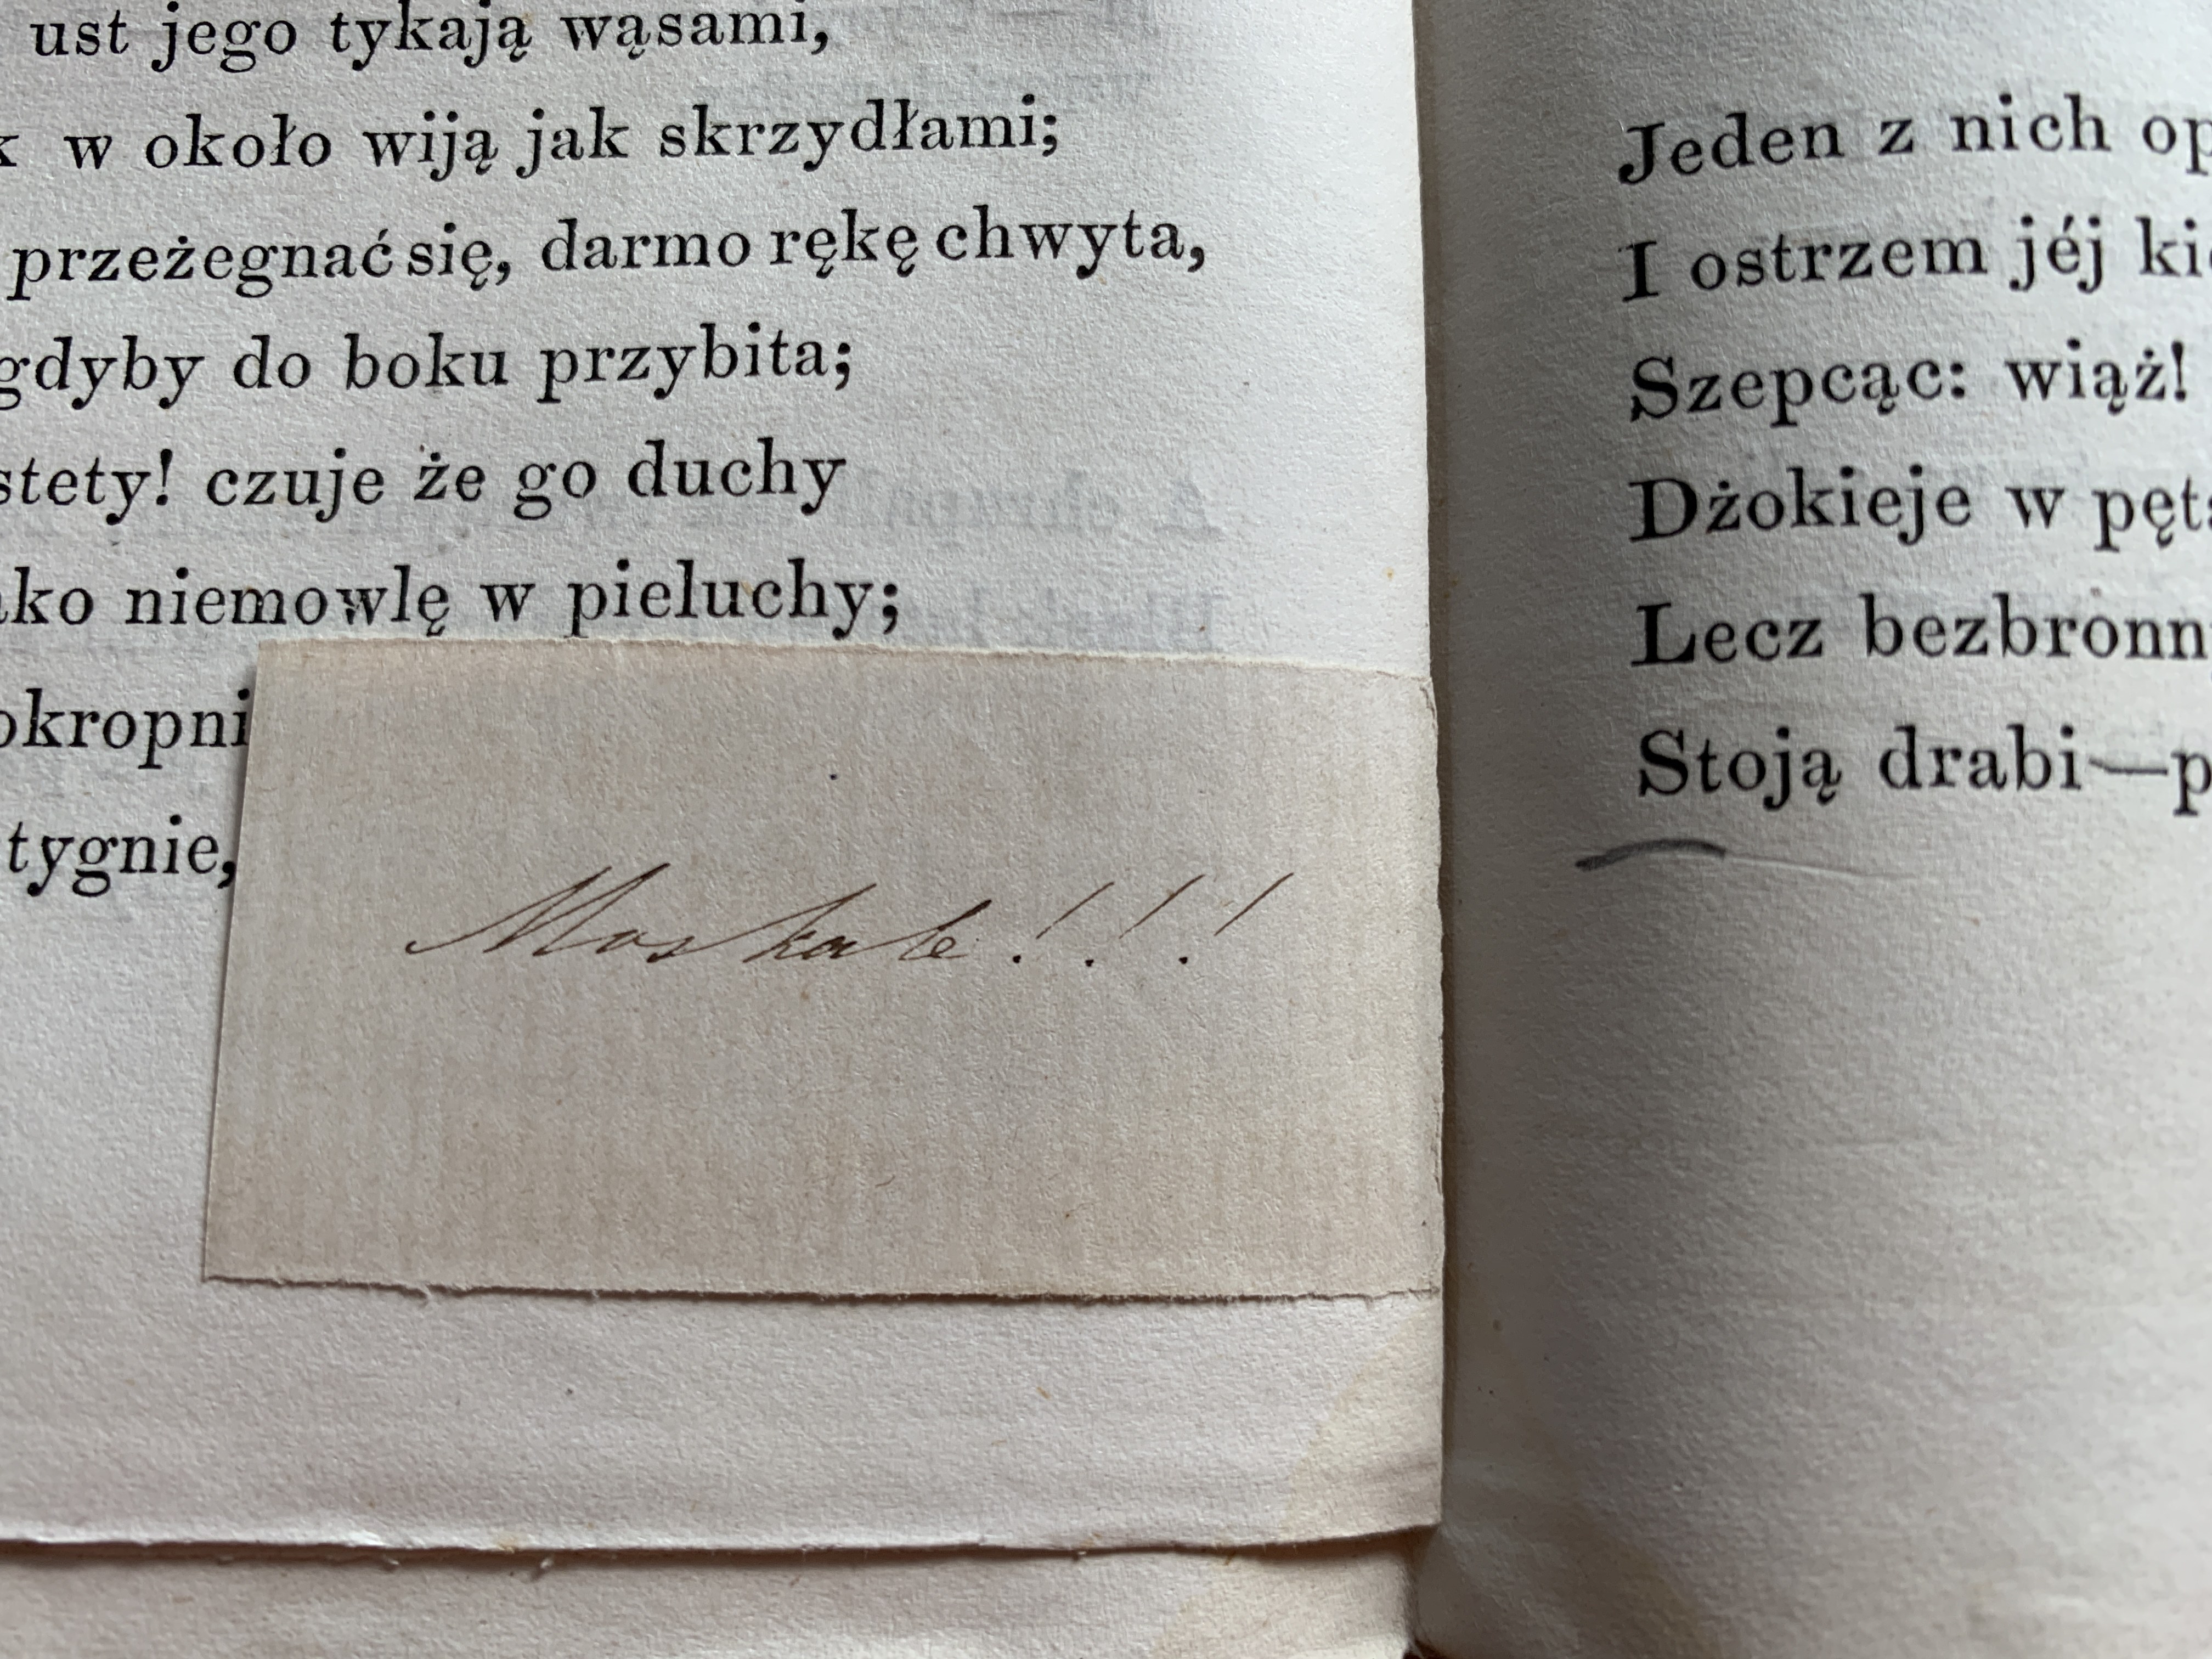 ust jego tykają wąsami,
w około wiją jak skrzydłami;
przeżegnać się, darmo rękę chwyta,
gdyby do boku przybita;
stety! czuje że go duchy
ko niemowlę w pieluchy;
okropni
tygnie,
Moskale!!!
Jeden z nich op
I ostrzem jéj ki
Szepcąc: wiąż!
Dżokieje w pęt
Lecz bezbronn
Stoją drabi—p